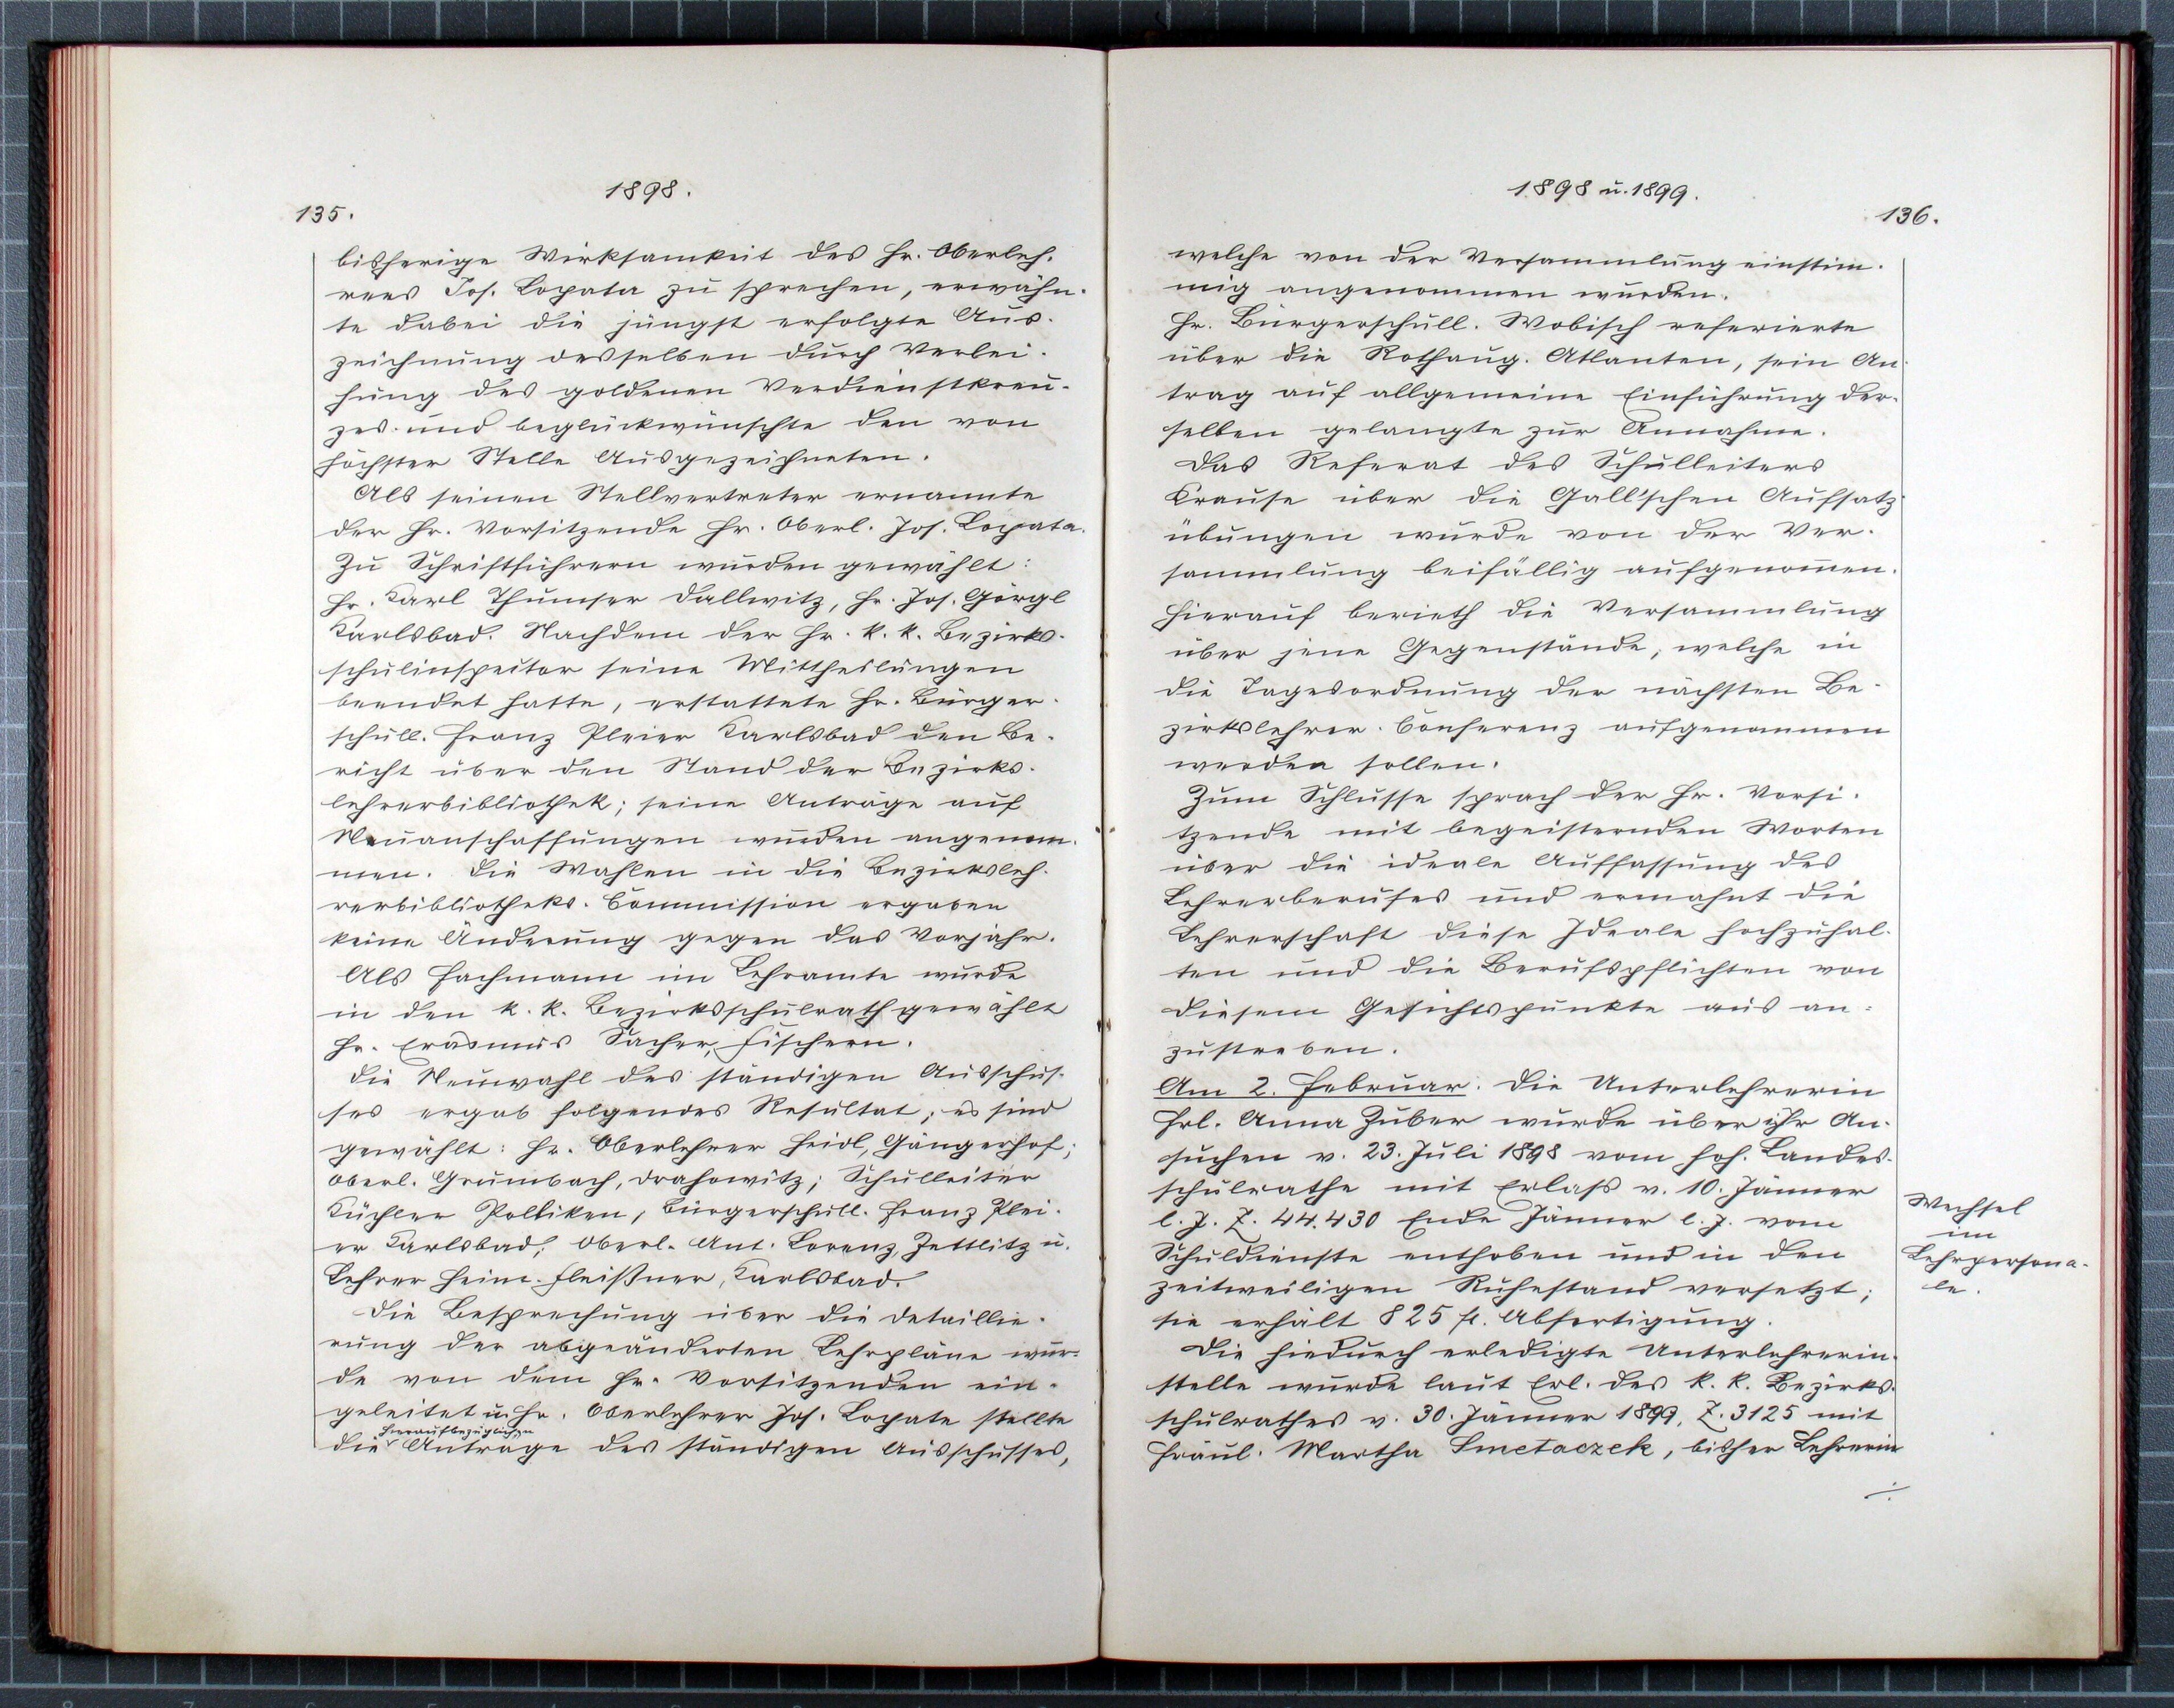 1898.
135.
bisherige Wirksamkeit des Hr. Oberleh-
rers Jos. Lopata zu sprechen, erwähn-
te dabei die jüngst erfolgte Aus-
zeichnung desselben durch Verlei-
hung des goldenen Verdienstkreu-
zes und beglückwünschte den von
höchster Stelle Ausgezeichneten.
Als seinen Stellvertreter ernannte
der Hr. Vorsitzende Hr. Oberl. Jos. Lopata.
Zu Schriftführern wurden gewählt:
Hr. Karl Thumser Dallwitz, Hr. Jos. Görgl
Karlsbad. Nachdem der Hr. k. k. Bezirks-
schulinspector seine Mittheilungen
beendet hatte, erstattete Hr. Bürger-
schull. Franz Pleier Karlsbad den Be-
richt über den Stand der Bezirks-
lehrerbibliothek; seine Anträge auf
Neuanschaffungen wurden angenom-
men. Die Wahlen in die Bezirksleh-
rerbibliotheks-Commission ergaben
keine Änderung gegen das Vorjahr.
Als Fachmann im Lehramte wurde
in den k. k. Bezirksschulrath gewählt
Hr. Erasmus Sacher, Fischern.
Die Neuwahl des ständigen Ausschus-
ses ergab folgendes Resultat; es sind
gewählt: Hr. Oberlehrer Heidl, Gängerhof;
Oberl. Grumbach, Drahowitz; Schulleiter
Küchler Polliken, Bürgerschull. Franz Plei-
er Karlsbad; Oberl. Ant. Lorenz, Zettlitz u.
Lehrer Heinr. Fleißner, Karlsbad.
Die Besprechung über die Detaillie-
rung der abgeänderten Lehrpläne wur-
de von dem Hr. Vorsitzenden ein-
geleitet u. Hr. Oberlehrer Jos. Lopata stellte
hieraufbezüglichen
die Anträge des ständigen Ausschusses,
1898 u. 1899.
136.
welche von der Versammlung einstim-
mig angenommen wurden.
Hr. Bürgerschull. Wobisch referierte
über die Rothaug-Atlanten, sein An-
trag auf allgemeine Einführung der-
selben gelangte zur Annahme.
Das Referat des Schulleiters
Krause über die Gall'schen Aufsatz-
übungen wurde von der Ver-
sammlung beifällig aufgenom̄en.
Hierauf berieth die Versammlung
über jene Gegenstände, welche in
die Tagesordnung der nächsten Be-
zirkslehrer-Conferenz aufgenommen
werden sollen.
Zum Schlusse sprach der Hr. Vorsi-
tzende mit begeisternden Worten
über die ideale Auffassung des
Lehrerberufes und ermahnt die
Lehrerschaft diese Ideale hochzuhal-
ten und die Berufspflichten von
diesem Gesichtspunkte aus an-
zustreben.
Am 2. Februar. Die Unterlehrerin
Frl. Anna Zuber wurde über ihr An-
suchen v. 23. Juli 1898 vom hoh. Landes-
schulrathe mit Erlaß v. 10. Jänner
l. J. Z. 44.430 Ende Jänner l. J. vom
Schuldienste enthoben und in den
zeitweiligen Ruhestand versetzt;
sie erhält 825 fl. Abfertigung.
Die hiedurch erledigte Unterlehrerin-
stelle wurde laut Erl. des k. k. Bezirks-
schulrathes v. 30. Jänner 1899, Z. 3125 mit
Fräul. Martha Smetaczek, bisher Lehrerin
./.
Wechsel
im
Lehrpersona-
le.